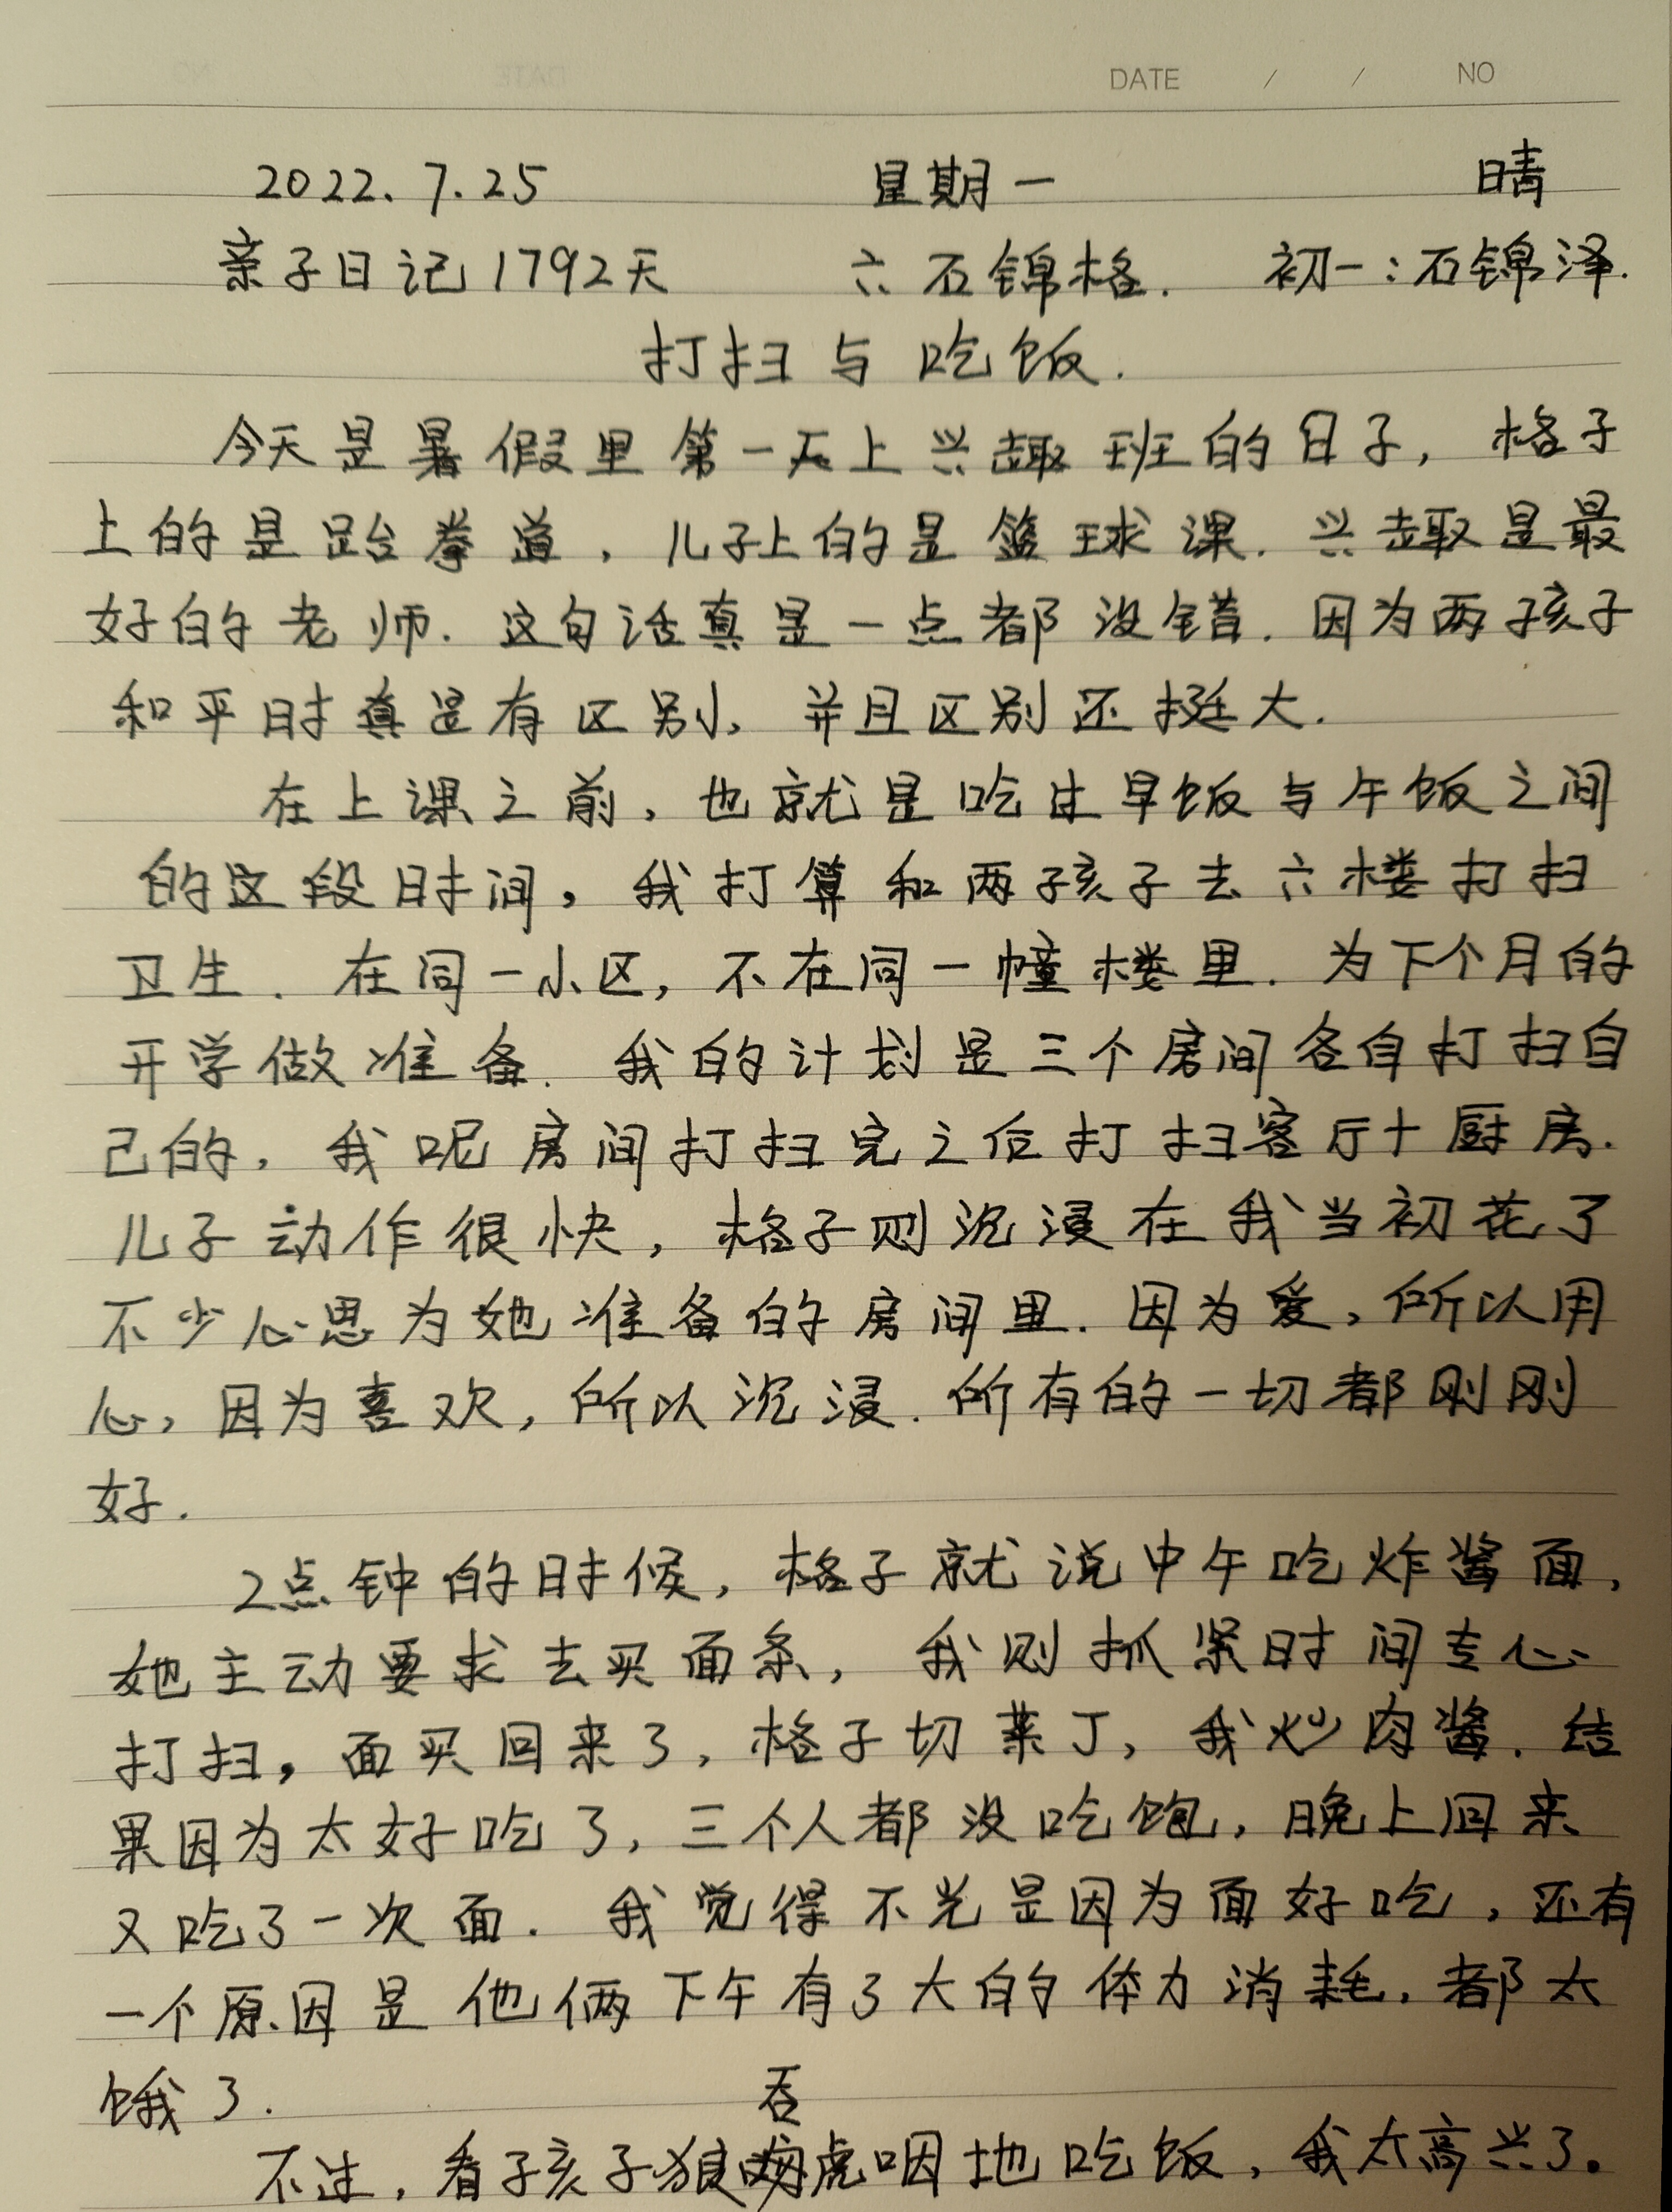 DATE / / NO
2022.7.25 星期一 晴
亲子日记1792天 六 石锦格. 初一:石锦泽.
打扫与吃饭.
今天是暑假里第一天上兴趣班的日子,格子
上的是跆拳道,儿子上的是篮球课.兴趣是最
好的老师.这句话真是一点都没错.因为两孩子
和平时真是有区别,并且区别还挺大.
在上课之前,也就是吃过早饭与午饭之间
的这段时间,我打算和两孩子去六楼打扫
卫生.在同一小区,不在同一幢楼里.为下个月的
开学做准备.我的计划是三个房间各自打扫自
己的,我呢房间打扫完之后打扫客厅+厨房.
儿子动作很快,格子则沉浸在我当初花了
不少心思为她准备的房间里.因为爱,所以用
心,因为喜欢,所以沉浸.所有的一切都刚刚
好.
2点钟的时候,格子就说中午吃炸酱面,
她主动要求去买面条,我则抓紧时间专心
打扫,面买回来了,格子切菜丁,我炒肉酱.结
果因为太好吃了,三个人都没吃饱,晚上回来
又吃了一次面.我觉得不光是因为面好吃,还有
一个原因是他俩下午有了大的体力消耗,都太
饿了.
不过,看子孩子狼吞虎咽地吃饭,我太高兴了。